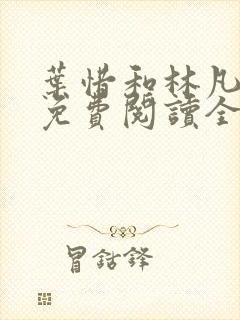 葉惜和林凡
免費閱讀全
冒鈷鋒